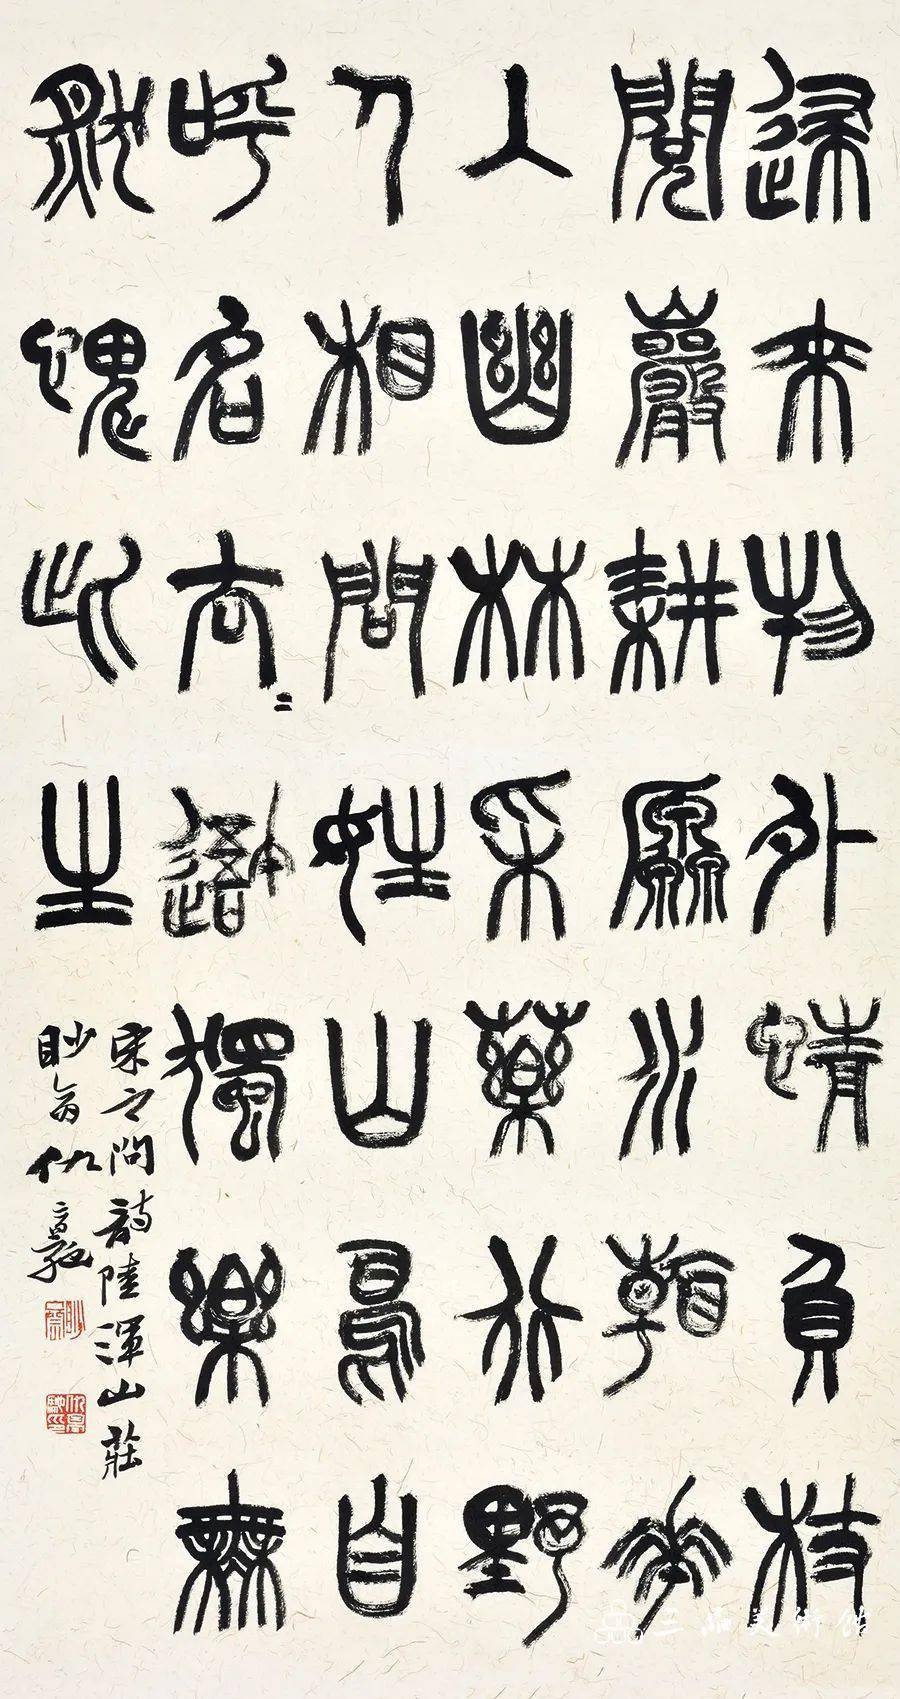 歸來物外情負杖
閱巖耕厵水看華
入幽林采藥行野
人相問姓山鳥自
呼名去〻吾獨樂無
然愧此生
宋之問詩陸渾山莊
眇翁仇高馳
三品美術館